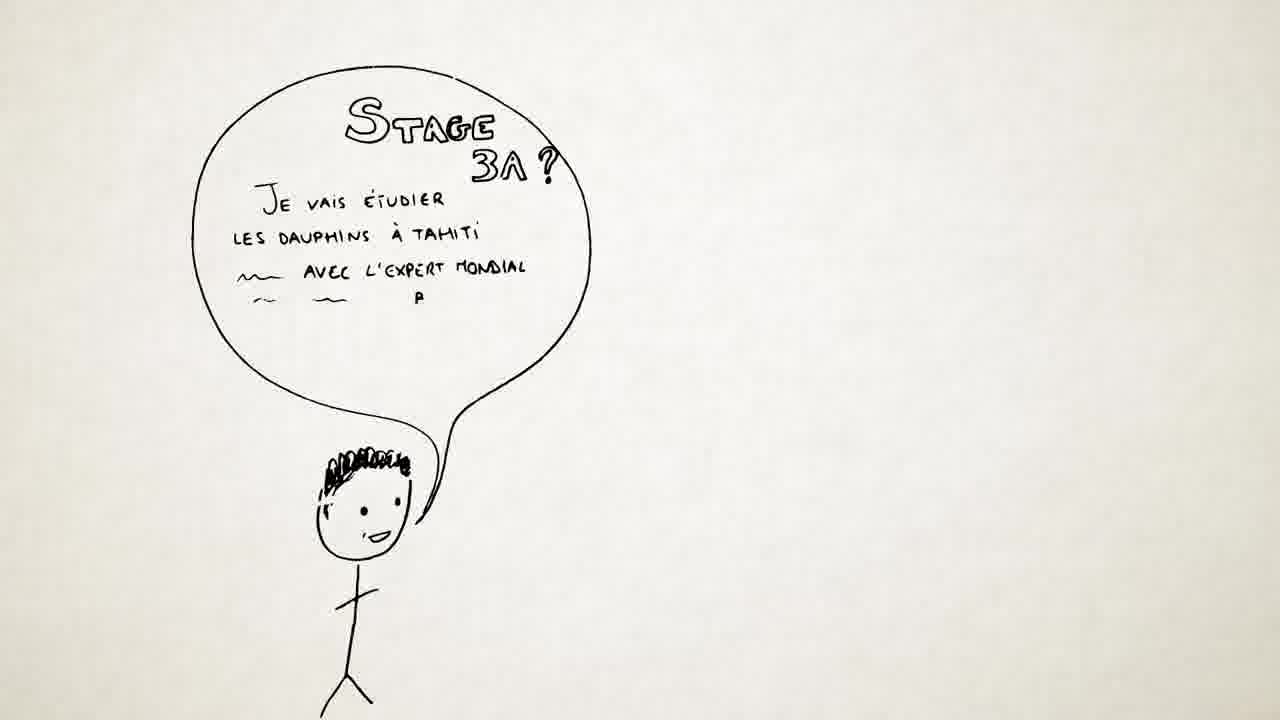 STAGE
3A ?
JE VAIS ÉTUDIER
LES DAUPHINS À TAHITI
AVEC L'EXPERT MONDIAL
P